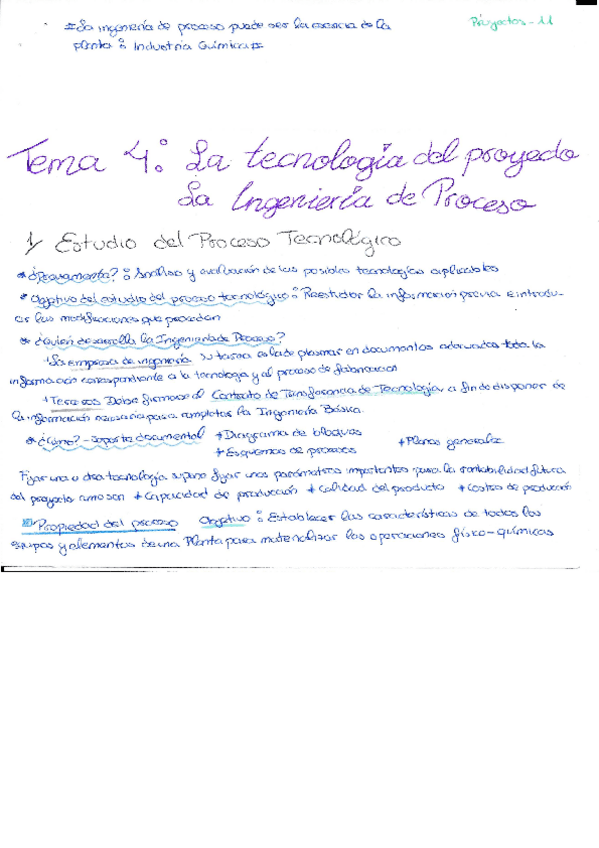 #La ingeniería de proceso puede ser la esencia de la
planta: Industria Química#
Proyectos-11
Tema 4: La tecnología del proyecto
La Ingeniería de Proceso
1/ Estudio del Proceso Tecnológico
* ¿Previamente?: Análisis y evaluación de las posibles tecnologías aplicables
* Objetivo del estudio del proceso tecnológico: Reestudiar la información previa e introdu-
cir las modificaciones que procedan
* ¿Quién desarrolla la Ingeniería de Proceso?
+La empresa de ingeniería su tarea es la de plasmar en documentos adecuados toda la
información correspondiente a la tecnología y al proceso de fabricación
+Terceros Debe firmarse el Contrato de Transferencia de Tecnología, a fin de disponer de
la información necesaria para completar la Ingeniería Básica.
* ¿Cómo? - Soporte documental +Diagrama de bloques +Planos generales
+Esquemas de procesos
Fijar una u otra tecnología supone fijar unos parámetros importantes para la rentabilidad futura
del proyecto como son +Capacidad de producción +Calidad del producto +Costes de producción
Propiedad del proceso Objetivo: Establecer las características de todos los
equipos y elementos de una Planta para materializar las operaciones físico-químicas